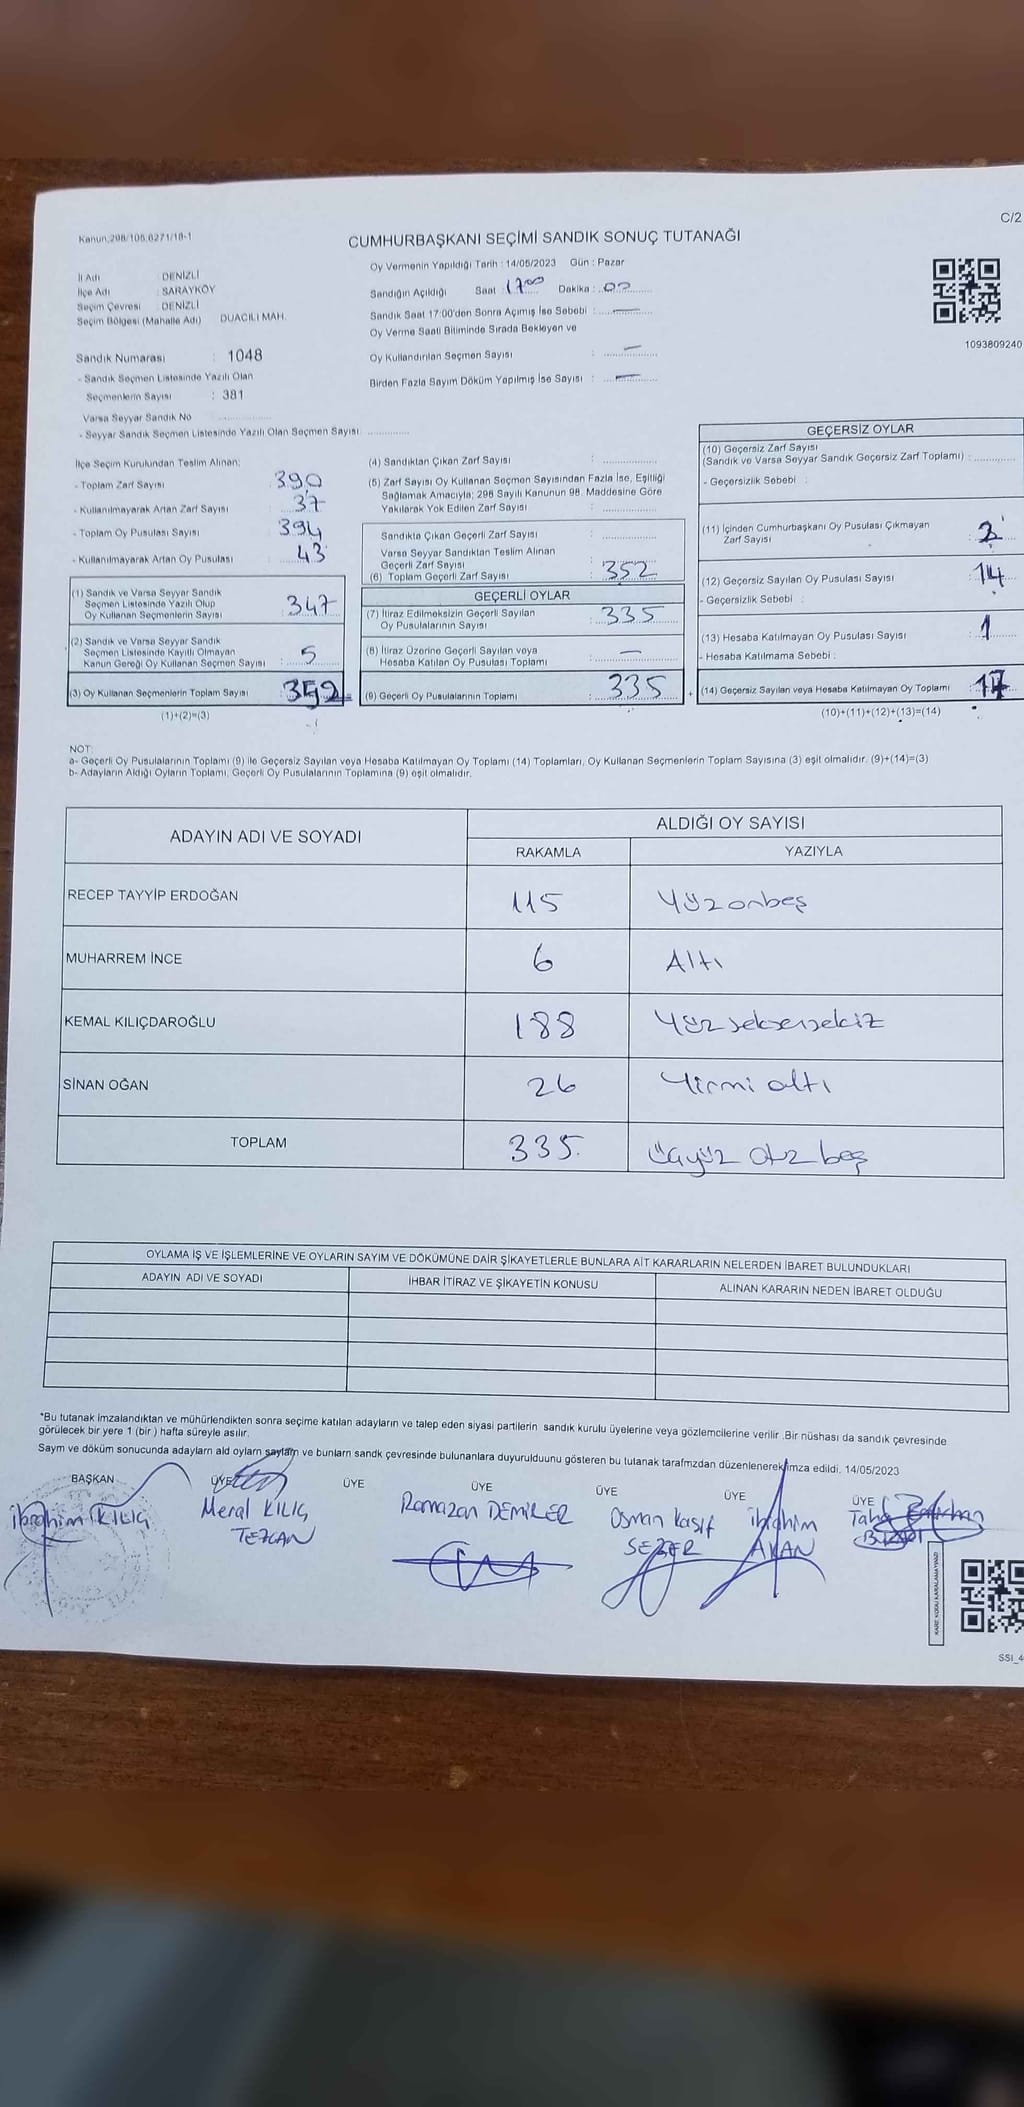 Kanun,298/106,6271/18-1
C/2
CUMHURBAŞKANI SEÇİMİ SANDIK SONUÇ TUTANAĞI
İl Adı : DENİZLİ
İlçe Adı : SARAYKÖY
Seçim Çevresi : DENİZLİ
Seçim Bölgesi (Mahalle Adı) DUACILI MAH.
Sandık Numarası : 1048
- Sandık Seçmen Listesinde Yazılı Olan
Seçmenlerin Sayısı : 381
Varsa Seyyar Sandık No
- Seyyar Sandık Seçmen Listesinde Yazılı Olan Seçmen Sayısı
Oy Vermenin Yapıldığı Tarih : 14/05/2023 Gün : Pazar
Sandığın Açıldığı Saat 17 00 Dakika : 00
Sandık Saat 17:00'den Sonra Açımış İse Sebebi : —
Oy Verme Saati Bitiminde Sırada Bekleyen ve
Oy Kullandırılan Seçmen Sayısı : —
Birden Fazla Sayım Döküm Yapılmış İse Sayısı : —
1093809240
İlçe Seçim Kurulundan Teslim Alınan:
- Toplam Zarf Sayısı : 390
- Kullanılmayarak Artan Zarf Sayısı : 37
- Toplam Oy Pusulası Sayısı : 394
- Kullanılmayarak Artan Oy Pusulası : 43
(1) Sandık ve Varsa Seyyar Sandık
Seçmen Listesinde Yazılı Olup
Oy Kullanan Seçmenlerin Sayısı : 347
(2) Sandık ve Varsa Seyyar Sandık
Seçmen Listesinde Kayıtlı Olmayan
Kanun Gereği Oy Kullanan Seçmen Sayısı : 5
(3) Oy Kullanan Seçmenlerin Toplam Sayısı : 352
(1)+(2)=(3)
(4) Sandıktan Çıkan Zarf Sayısı :
(5) Zarf Sayısı Oy Kullanan Seçmen Sayısından Fazla İse, Eşitliği
Sağlamak Amacıyla; 298 Sayılı Kanunun 98. Maddesine Göre
Yakılarak Yok Edilen Zarf Sayısı :
Sandıkta Çıkan Geçerli Zarf Sayısı :
Varsa Seyyar Sandıktan Teslim Alınan
Geçerli Zarf Sayısı
(6) Toplam Geçerli Zarf Sayısı : 352
GEÇERLİ OYLAR
(7) İtiraz Edilmeksizin Geçerli Sayılan
Oy Pusulalarının Sayısı : 335
(8) İtiraz Üzerine Geçerli Sayılan veya
Hesaba Katılan Oy Pusulası Toplamı : —
(9) Geçerli Oy Pusulalarının Toplamı : 335 +
GEÇERSİZ OYLAR
(10) Geçersiz Zarf Sayısı
(Sandık ve Varsa Seyyar Sandık Geçersiz Zarf Toplamı) :
- Geçersizlik Sebebi :
(11) İçinden Cumhurbaşkanı Oy Pusulası Çıkmayan
Zarf Sayısı : 2
(12) Geçersiz Sayılan Oy Pusulası Sayısı : 14
- Geçersizlik Sebebi :
(13) Hesaba Katılmayan Oy Pusulası Sayısı : 1
- Hesaba Katılmama Sebebi :
(14) Geçersiz Sayılan veya Hesaba Katılmayan Oy Toplamı : 17
(10)+(11)+(12)+(13)=(14)
NOT:
a- Geçerli Oy Pusulalarının Toplamı (9) ile Geçersiz Sayılan veya Hesaba Katılmayan Oy Toplamı (14) Toplamları, Oy Kullanan Seçmenlerin Toplam Sayısına (3) eşit olmalıdır. (9)+(14)=(3)
b- Adayların Aldığı Oyların Toplamı, Geçerli Oy Pusulalarının Toplamına (9) eşit olmalıdır.
ADAYIN ADI VE SOYADI
ALDIĞI OY SAYISI
RAKAMLA YAZIYLA
RECEP TAYYİP ERDOĞAN 115 Yüzonbeş
MUHARREM İNCE 6 Altı
KEMAL KILIÇDAROĞLU 188 Yüzseksensekiz
SİNAN OĞAN 26 Yirmi altı
TOPLAM 335. üçyüz otz beş
OYLAMA İŞ VE İŞLEMLERİNE VE OYLARIN SAYIM VE DÖKÜMÜNE DAİR ŞİKAYETLERLE BUNLARA AİT KARARLARIN NELERDEN İBARET BULUNDUKLARI
ADAYIN ADI VE SOYADI İHBAR İTİRAZ VE ŞİKAYETİN KONUSU ALINAN KARARIN NEDEN İBARET OLDUĞU
*Bu tutanak imzalandıktan ve mühürlendikten sonra seçime katılan adayların ve talep eden siyasi partilerin sandık kurulu üyelerine veya gözlemcilerine verilir .Bir nüshası da sandık çevresinde
görülecek bir yere 1 (bir ) hafta süreyle asılır.
Saym ve döküm sonucunda adaylarn ald oylarn saylarn ve bunlarn sandk çevresinde bulunanlara duyurulduunu gösteren bu tutanak tarafmzdan düzenlenerek imza edildi. 14/05/2023
BAŞKAN ÜYE ÜYE ÜYE ÜYE ÜYE ÜYE
İbrahim KILIÇ
Meral KILIÇ
TEZCAN
Ramazan DEMİRER
Osman Kasıf
SEZER
İbrahim
AKAN
Taha
KARE KODU KARALAMAYINIZ
SSI_4